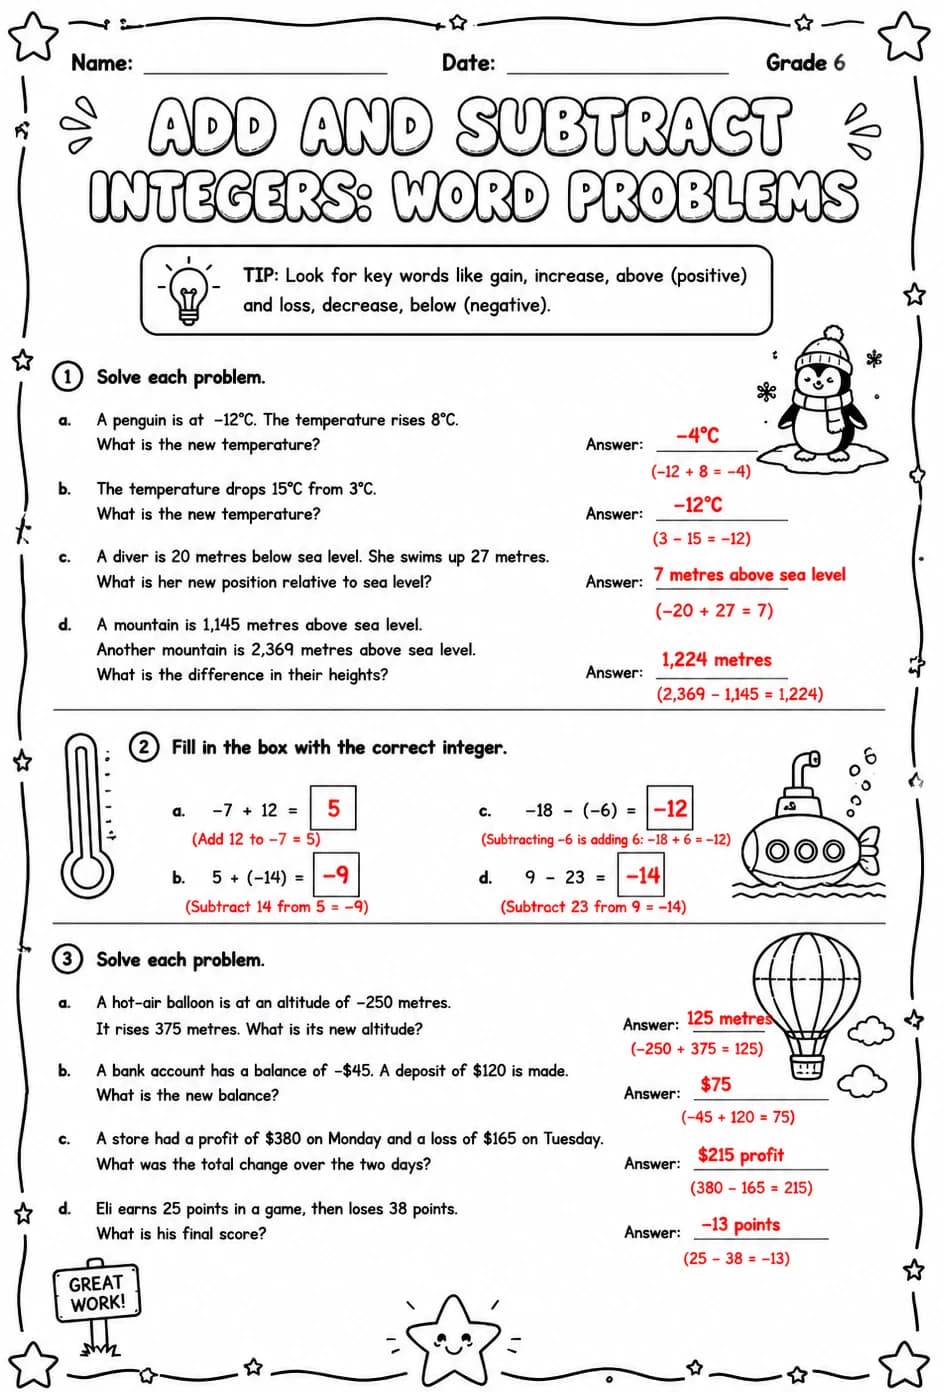 Name: Date: Grade 6
ADD AND SUBTRACT
INTEGERS: WORD PROBLEMS
TIP: Look for key words like gain, increase, above (positive)
and loss, decrease, below (negative).
1 Solve each problem.
a. A penguin is at −12°C. The temperature rises 8°C.
What is the new temperature?
Answer: −4°C
(−12 + 8 = −4)
b. The temperature drops 15°C from 3°C.
What is the new temperature?
Answer: −12°C
(3 − 15 = −12)
c. A diver is 20 metres below sea level. She swims up 27 metres.
What is her new position relative to sea level?
Answer: 7 metres above sea level
(−20 + 27 = 7)
d. A mountain is 1,145 metres above sea level.
Another mountain is 2,369 metres above sea level.
What is the difference in their heights?
Answer: 1,224 metres
(2,369 − 1,145 = 1,224)
2 Fill in the box with the correct integer.
a. −7 + 12 = 5
(Add 12 to −7 = 5)
b. 5 + (−14) = −9
(Subtract 14 from 5 = −9)
c. −18 − (−6) = −12
(Subtracting −6 is adding 6: −18 + 6 = −12)
d. 9 − 23 = −14
(Subtract 23 from 9 = −14)
3 Solve each problem.
a. A hot-air balloon is at an altitude of −250 metres.
It rises 375 metres. What is its new altitude?
Answer: 125 metres
(−250 + 375 = 125)
b. A bank account has a balance of −$45. A deposit of $120 is made.
What is the new balance?
Answer: $75
(−45 + 120 = 75)
c. A store had a profit of $380 on Monday and a loss of $165 on Tuesday.
What was the total change over the two days?
Answer: $215 profit
(380 − 165 = 215)
d. Eli earns 25 points in a game, then loses 38 points.
What is his final score?
Answer: −13 points
(25 − 38 = −13)
GREAT
WORK!